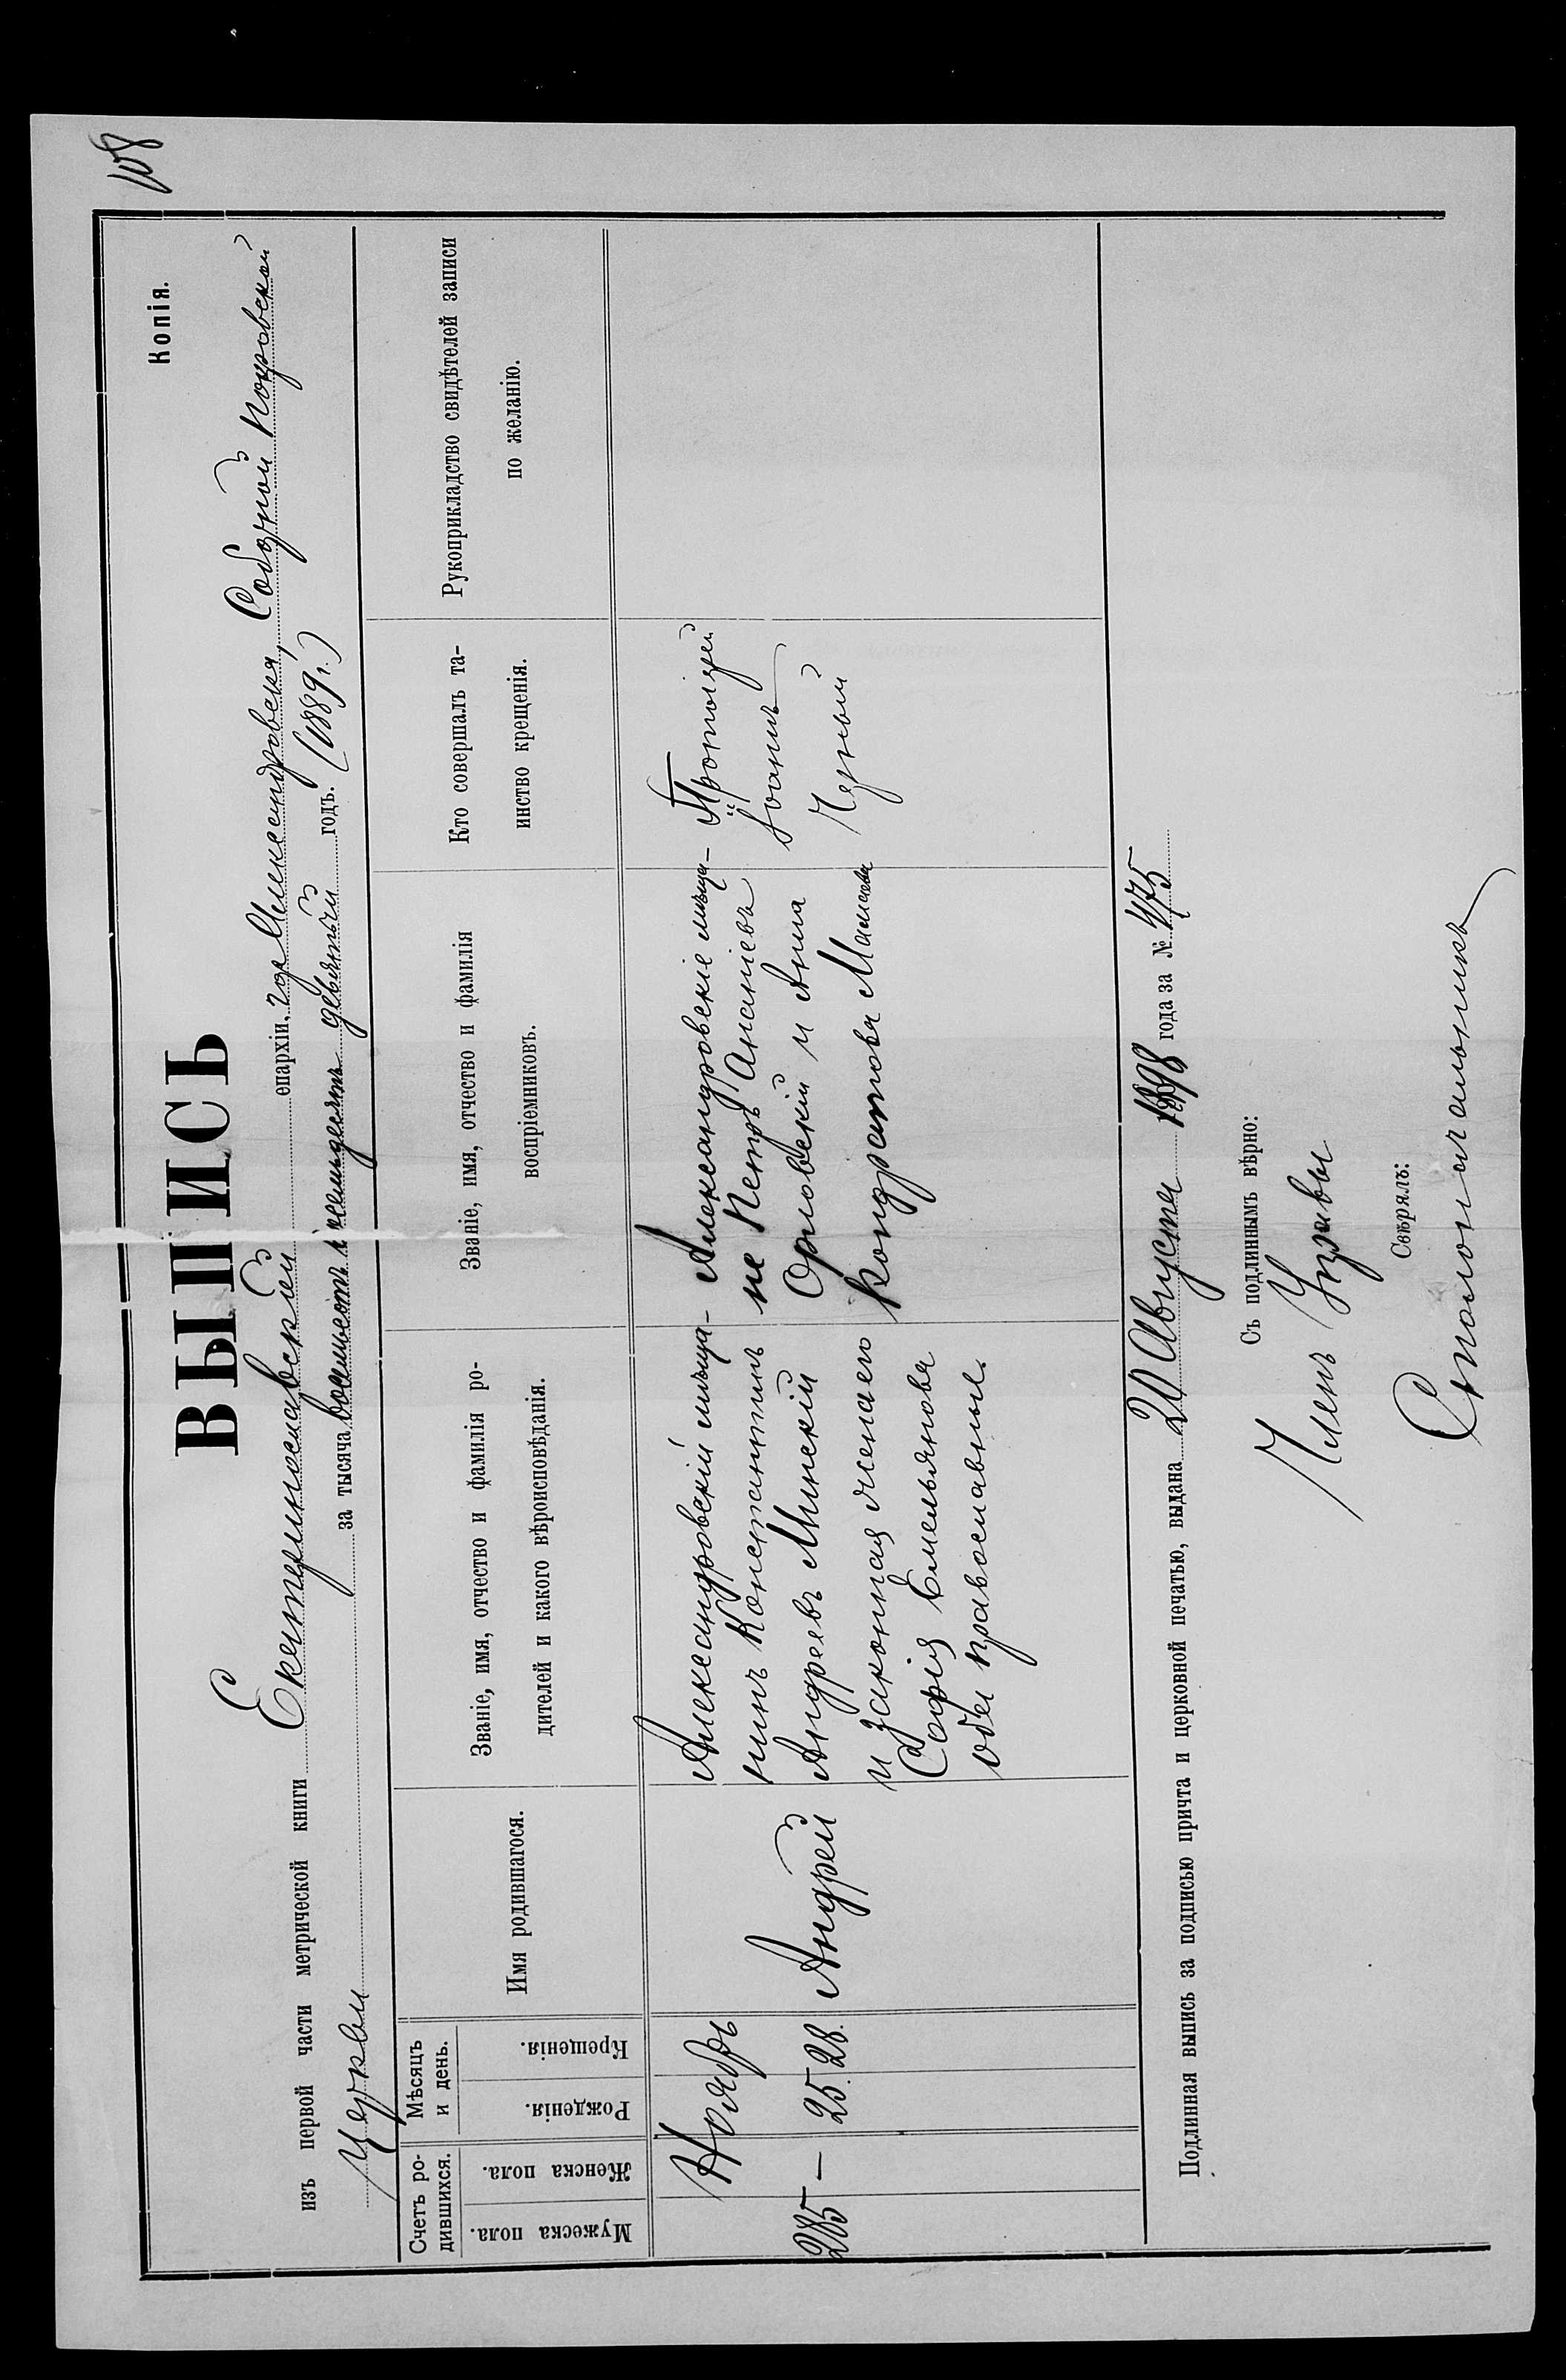 108
Копія.
ВЫПИСЬ
изъ первой части метрической книги Екатеринославской епархіи, гор. Александровска, Соборной Покровской
церкви за тысяча восемьсотъ восемьдесятъ девятый годъ. (1889 г.)
Счетъ ро-
дившихся.
Мужеска пола.
Женска пола.
Мѣсяцъ
и день.
Рожденія.
Крещенія.
Имя родившагося.
Званіе, имя, отчество и фамилія ро-
дителей и какого вѣроисповѣданія.
Званіе, имя, отчество и фамилія
воспріемниковъ.
Кто совершалъ та-
инство крещенія.
Рукоприкладство свидѣтелей записи
по желанію.
Ноябрь
285 — 25. 28.
Андрей
Александровскій мѣща-
нинъ Константинъ
Андреевъ Минскій
и законная жена его
Софія Емельянова
оба православные.
Александровскіе мѣща-
не Петръ Ананіевъ
Орловскій и Анна
Кондратова
Протоіерей
Іоаннъ
Черный
Подлинная выпись за подписью причта и церковной печатью, выдана 20 Августа 1898 года за № 475
Съ подлиннымъ вѣрно:
Членъ Управы
Свѣрялъ:
Столоначальникъ